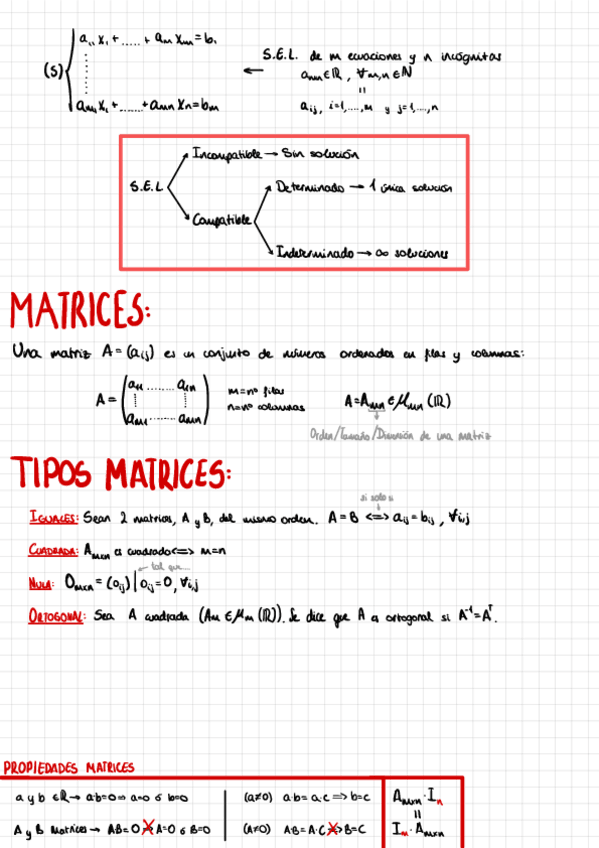 (S) { a₁₁x₁ + ...... + a₁ₙxₘ = b₁
S.E.L. de m ecuaciones y n incógnitas
← aₘₙ ∈ ℝ, ∀m,n ∈ ℕ
=
aₘ₁x₁ + ...... + aₘₙxₙ = bₘ
aᵢⱼ, i=1,...,m y j=1,...,n
Incompatible → Sin solución
S.E.L
Determinado → 1 única solución
Compatible
Indeterminado → ∞ soluciones
MATRICES:
Una matriz A = (aᵢⱼ) es un conjunto de números ordenados en filas y columnas:
A = ( a₁₁ ........ a₁ₙ
aₘ₁ ........ aₘₙ )
m = nº filas
n = nº columnas
A = Aₘₙ ∈ ℳₘₙ (ℝ)
Orden/Tamaño/Dimensión de una matriz
TIPOS MATRICES:
si solo si
IGUALES: Sean 2 matrices, A y B, del mismo orden. A = B <=> aᵢⱼ = bᵢⱼ, ∀i,j
CUADRADA: Aₘₓₙ es cuadrado <=> m=n
← tal que...
NULA: Oₘₓₙ = (oᵢⱼ) | oᵢⱼ = 0, ∀i,j
ORTOGONAL: Sea A cuadrada (Aₘ ∈ ℳₘ (ℝ)). Se dice que A es ortogonal si A⁻¹ = Aᵀ.
PROPIEDADES MATRICES
a y b ∈ ℝ → a·b=0 => a=0 ó b=0
(a≠0) a·b = a·c => b=c
Aₘₓₙ · Iₙ
=
A y B Matrices → AB=0 X A=0 ó B=0
(A≠0) A·B = A·C X> B=C
Iₘ · Aₘₓₙ